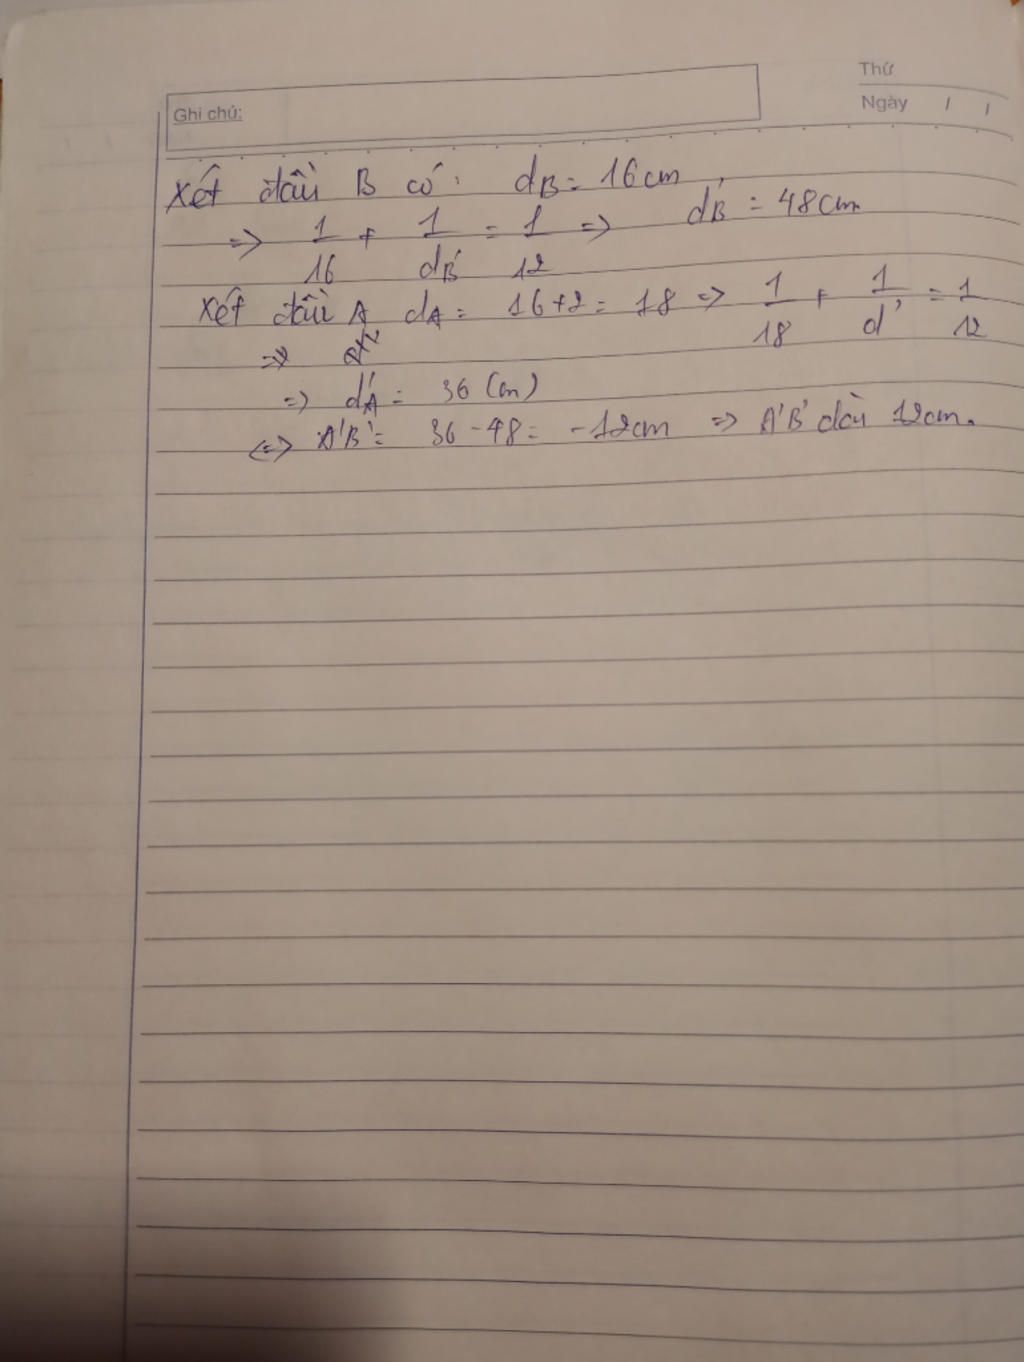 Thứ
Ghi chú:
Ngày / /
Xét đầu B có: dB = 16cm
=> 1/16 + 1/dB' = 1/12 => dB' = 48cm
Xét đầu A dA = 16+2 = 18 => 1/18 + 1/d' = 1/12
=>
=> dA' = 36 (cm)
<=> A'B' = 36 - 48 = -12cm => A'B' dài 12cm.